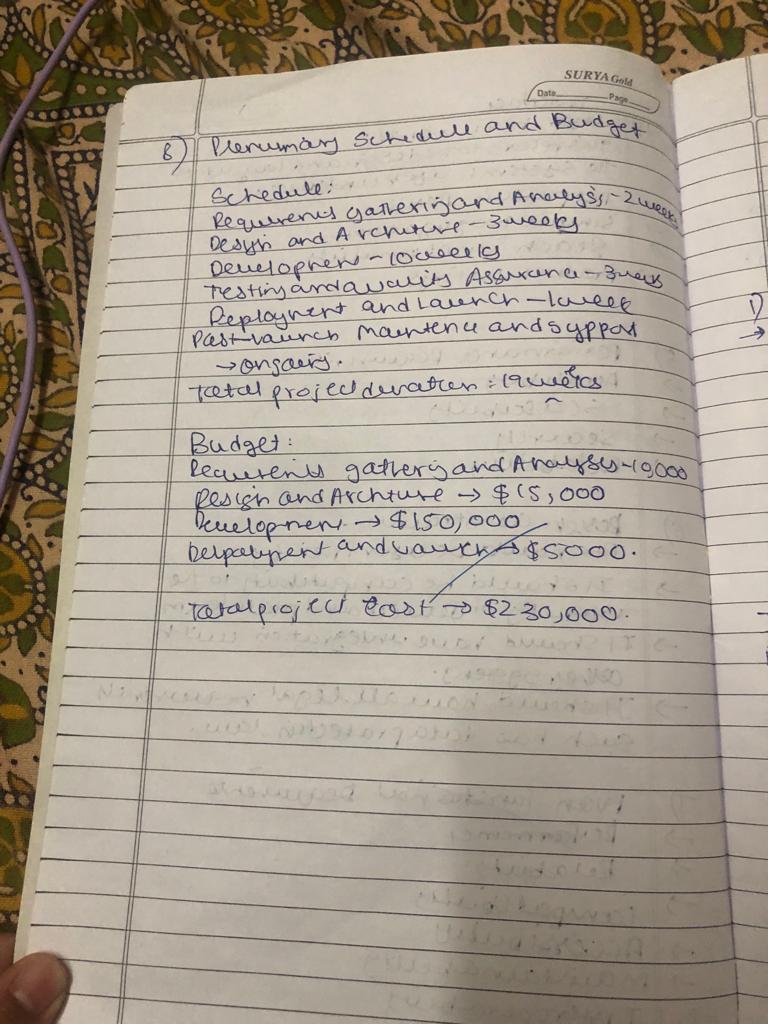 SURYA Gold
Date Page
8) Plerumary Schedule and Budget
Schedule:
Requirents gathering and Analysis - 2 weeks
Design and Architure - 3 weeks
Development - 10 weeks
Testing and Quality Assurance - 3 weeks
Deployment and Launch - 1 week
Post-launch Maintence and support
→ ongoing.
Total project duration : 19 weeks
Budget:
Requirents gathering and Analyses - 10,000
Design and Archture → $15,000
Development → $150,000
Delpolyment and Launch → $5000.
Total project Cost → $230,000.
1)
→